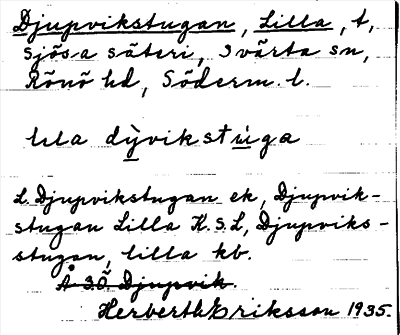 Djupvikstugan, Lilla, t,
Sjösa säteri, Svärta sn,
Rönö hd, Söderm. l.
lila dỳvikstùga
L. Djupvikstugan ek, Djupvik-
stugan Lilla K.S.L, Djupviks-
stugan, lilla kb.
Å 3.Ö. Djupvik.
Herberth Eriksson 1935.